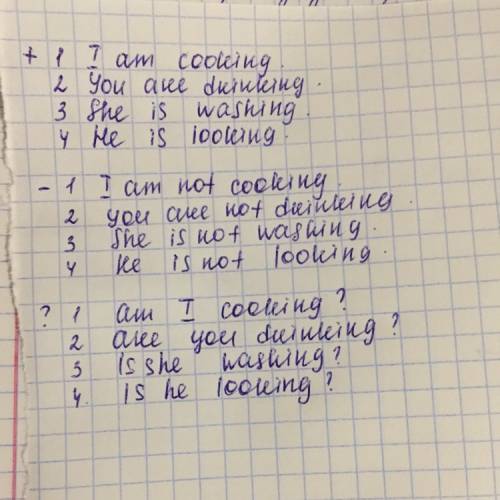 + 1 I am cooking.
2 You are drinking.
3 She is washing.
4 He is looking.
- 1 I am not cooking.
2 you are not drinking.
3 She is not washing.
4 He is not looking.
? 1 am I cooking?
2 are you drinking?
3 is she washing?
4. is he looking?